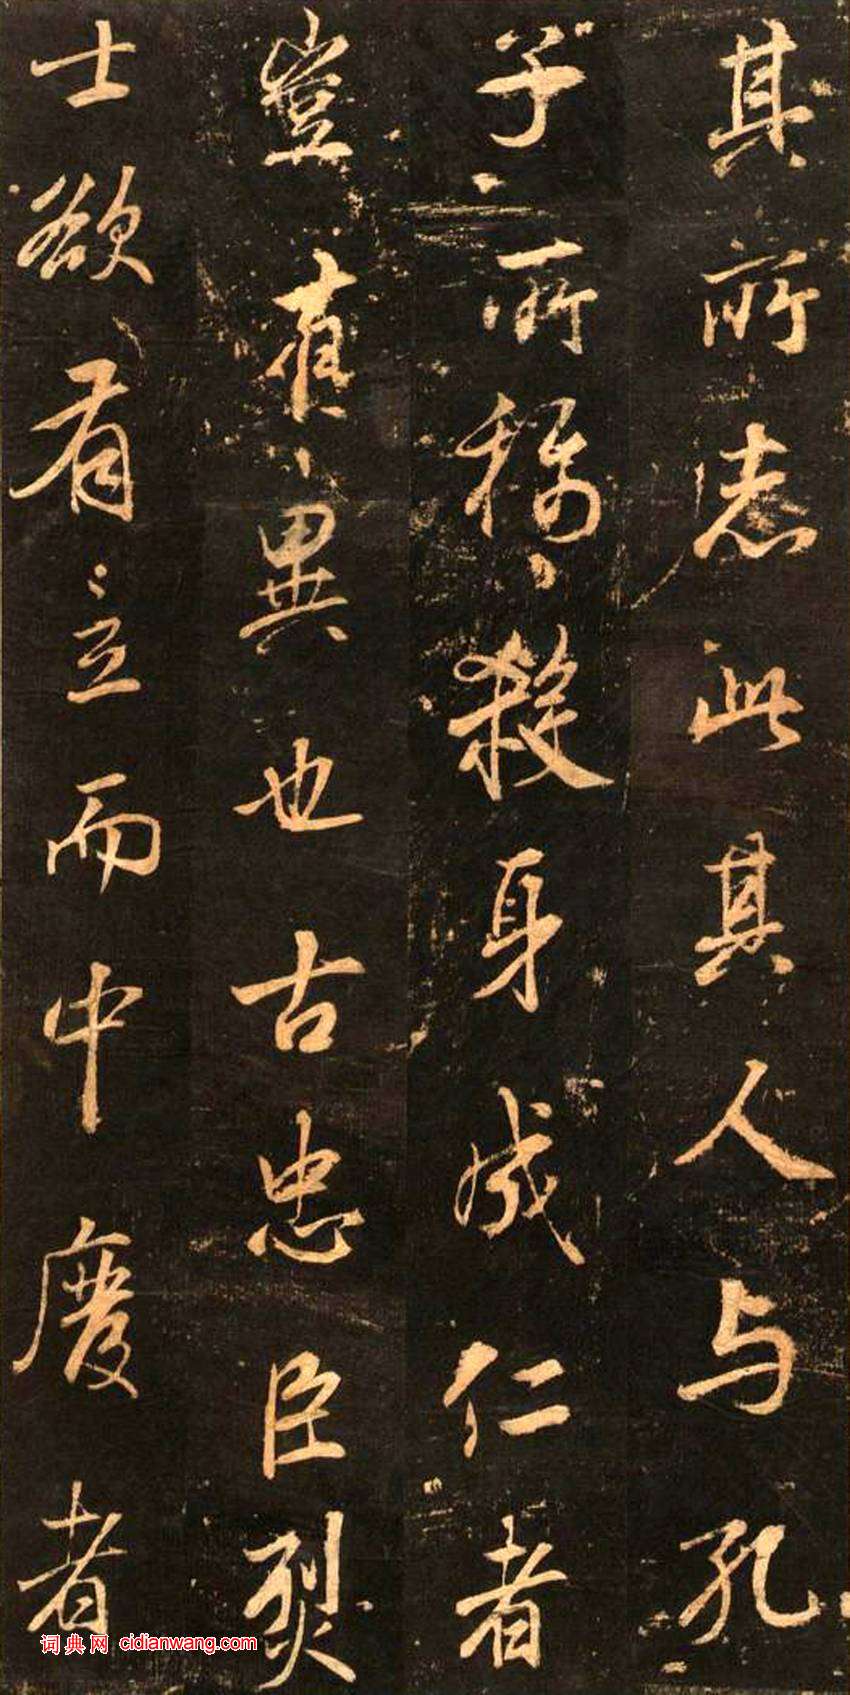 其所志此其人与孔
子所稱殺身成仁者
豈有異也古忠臣烈
士欲有立而中廢者
词典网 cidianwang.com